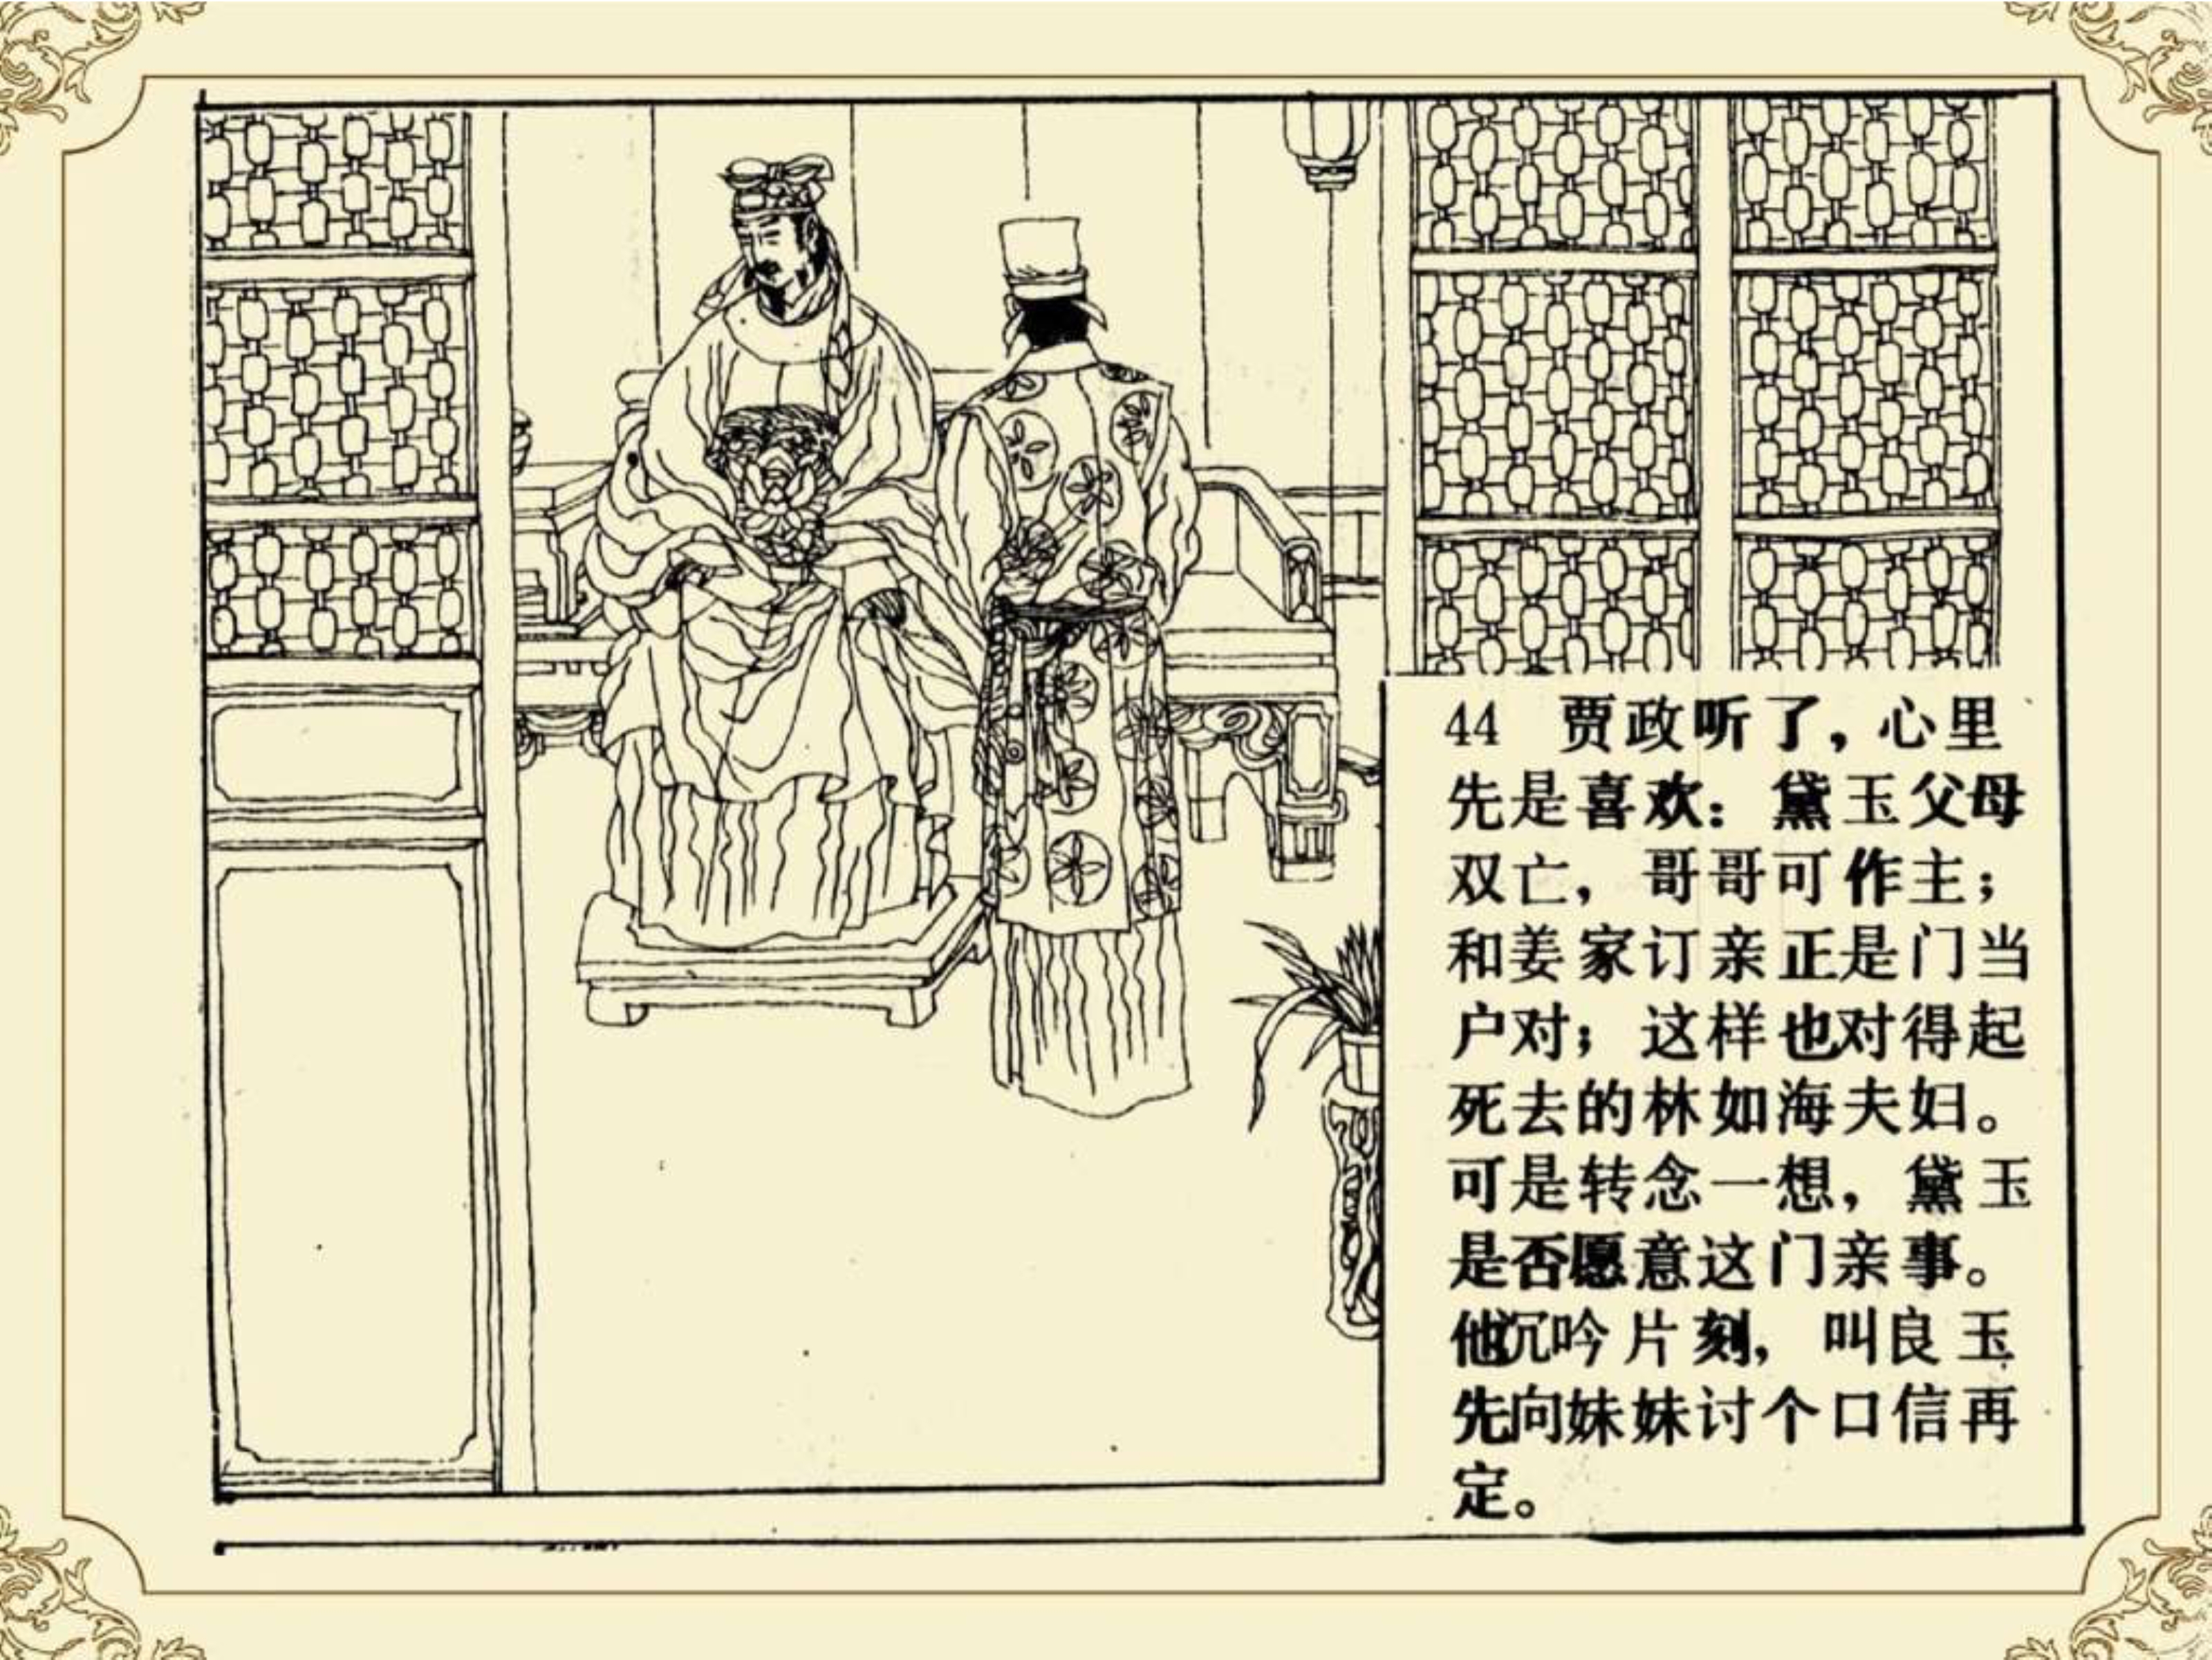 44 贾政听了，心里
先是喜欢：黛玉父母
双亡，哥哥可作主；
和姜家订亲正是门当
户对；这样也对得起
死去的林如海夫妇。
可是转念一想，黛玉
是否愿意这门亲事。
他沉吟片刻，叫良玉
先向妹妹讨个口信再
定。